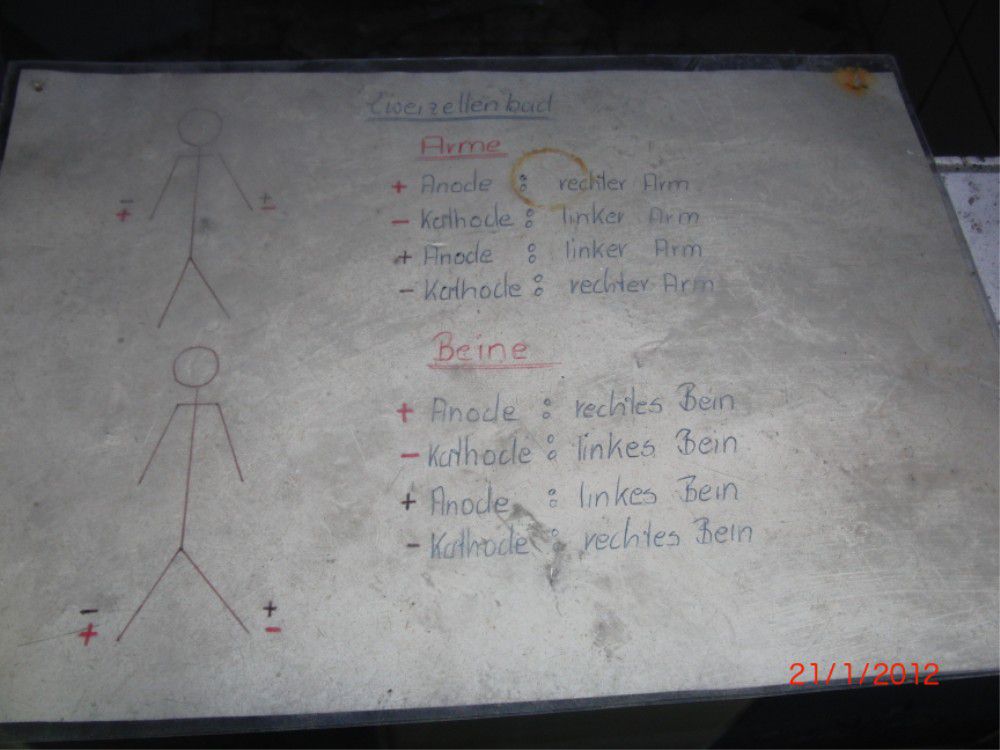 Zweizellenbad
Arme
+ Anode : rechter Arm
- Kathode : linker Arm
+ Anode : linker Arm
- Kathode : rechter Arm
- +
+ -
Beine
+ Anode : rechtes Bein
- Kathode : linkes Bein
+ Anode : linkes Bein
- Kathode : rechtes Bein
- +
+ -
21/1/2012